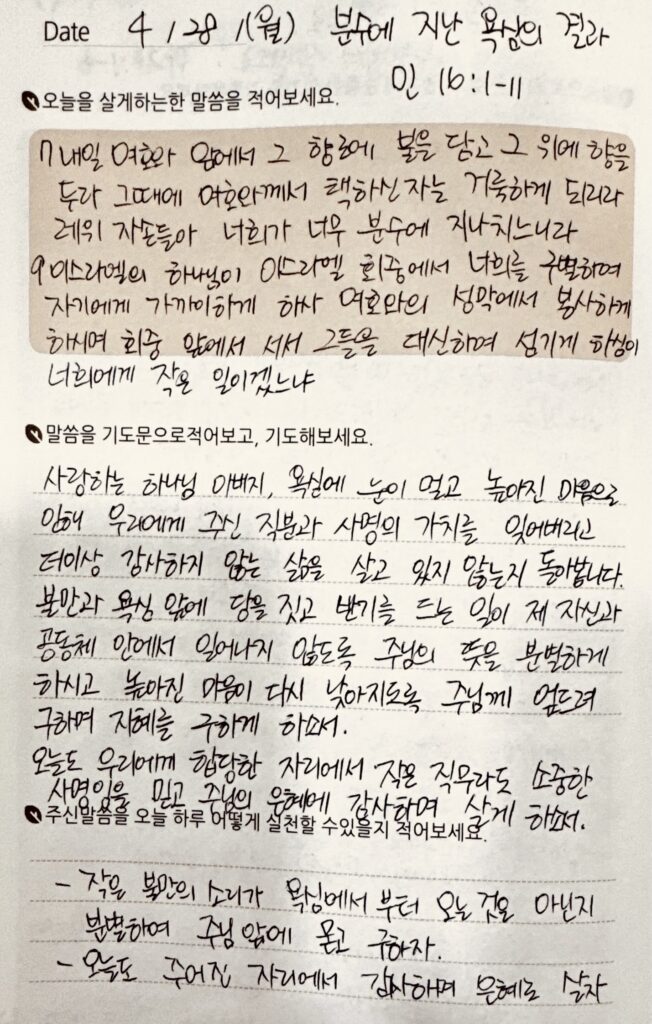 Date 4 / 28 / (월) 분수에 지난 욕심의 결과
민 16:1-11
오늘을 살게하는한 말씀을 적어보세요.
7 내일 여호와 앞에서 그 향로에 불을 담고 그 위에 향을
두라 그때에 여호와께서 택하신 자는 거룩하게 되리라
레위 자손들아 너희가 너무 분수에 지나치느니라
9 이스라엘의 하나님이 이스라엘 회중에서 너희를 구별하여
자기에게 가까이하게 하사 여호와의 성막에서 봉사하게
하시며 회중 앞에서 서서 그들을 대신하여 섬기게 하심이
너희에게 작은 일이겠느냐
말씀을 기도문으로적어보고, 기도해보세요.
사랑하는 하나님 아버지, 욕심에 눈이 멀고 높아진 마음으로
인해 우리에게 주신 직분과 사명의 가치를 잊어버리고
더이상 감사하지 않는 삶을 살고 있지 않는지 돌아봅니다.
불만과 욕심 앞에 당을 짓고 반기를 드는 일이 제 자신과
공동체 안에서 일어나지 않도록 주님의 뜻을 분별하게
하시고 높아진 마음이 다시 낮아지도록 주님께 엎드려
구하며 지혜를 구하게 하소서.
오늘도 우리에게 합당한 자리에서 작은 직무라도 소중한
사명임을 믿고 주님의 은혜에 감사하며 살게 하소서.
주신말씀을 오늘 하루 어떻게 실천할 수있을지 적어보세요.
- 작은 불만의 소리가 욕심에서 부터 오늘 것은 아닌지
분별하여 주님 앞에 묻고 구하자.
- 오늘도 주어진 자리에서 감사하며 은혜로 살자